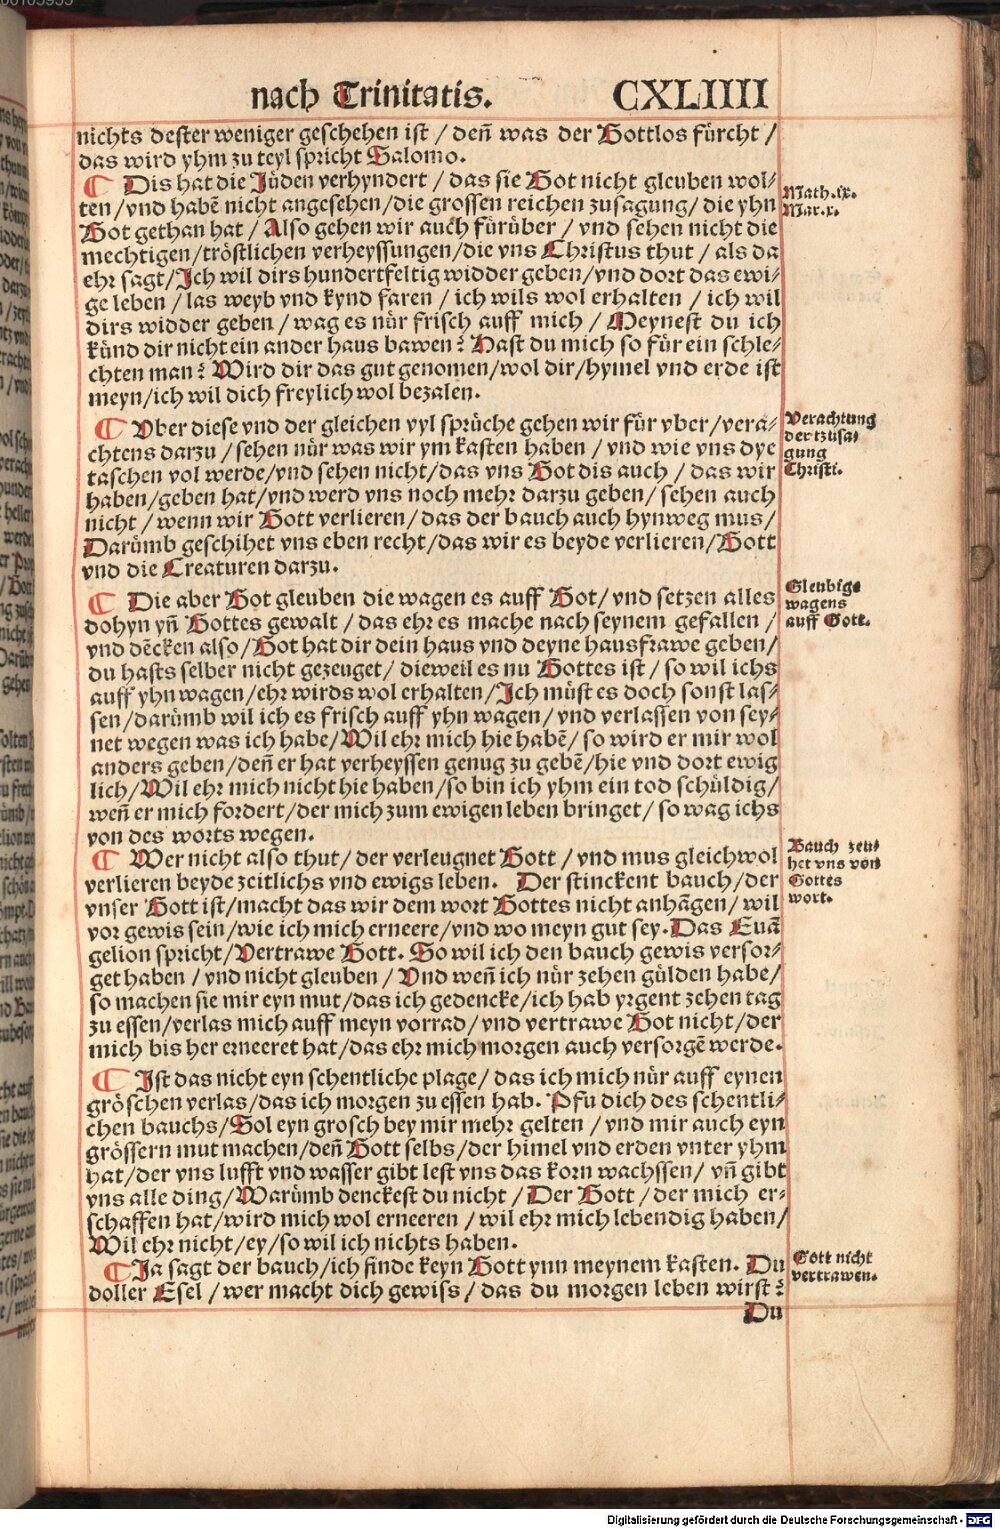 nach Trinitatis. CXLIIII
nichts dester weniger geschehen ist / deñ was der Gottlos fürcht /
das wird yhm zu teyl spricht Salomo.
¶ Dis hat die Jüden verhyndert / das sie Got nicht gleuben wol⸗
ten / vnd habẽ nicht angesehen / die grossen reichen zusagung / die yhn
Got gethan hat / Also gehen wir auch fürüber / vnd sehen nicht die
mechtigen / tröstlichen verheyssungen / die vns Christus thut / als da
ehr sagt / Jch wil dirs hundertfeltig widder geben / vnd dort das ewi⸗
ge leben / las weyb vnd kynd faren / ich wils wol erhalten / ich wil
dirs widder geben / wag es nür frisch auff mich / Meynest du ich
künd dir nicht ein ander haus bawen? Hast du mich so für ein schle⸗
chten man? Wird dir das gut genomen / wol dir / hymel vnd erde ist
meyn / ich wil dich freylich wol bezalen.
Math.ix.
Mar.x.
¶ Vber diese vnd der gleichen vyl sprüche gehen wir für vber / vera⸗
chtens darzu / sehen nür was wir ym kasten haben / vnd wie vns dye
taschen vol werde / vnd sehen nicht / das vns Got dis auch / das wir
haben / geben hat / vnd werd vns noch mehr darzu geben / sehen auch
nicht / wenn wir Gott verlieren / das der bauch auch hynweg mus /
Darümb geschihet vns eben recht / das wir es beyde verlieren / Gott
vnd die Creaturen darzu.
Verachtung
der tzusa⸗
gung
Christi.
¶ Die aber Got gleuben die wagen es auff Got / vnd setzen alles
dohyn yñ Gottes gewalt / das ehr es mache nach seynem gefallen /
vnd dẽcken also / Got hat dir dein haus vnd deyne hausfrawe geben /
du hasts selber nicht gezeuget / dieweil es nu Gottes ist / so wil ichs
auff yhn wagen / ehr wirds wol erhalten / Jch müst es doch sonst las⸗
sen / darümb wil ich es frisch auff yhn wagen / vnd verlassen von sey⸗
net wegen was ich habe / Wil ehr mich hie habẽ / so wird er mir wol
anders geben / deñ er hat verheyssen genug zu gebẽ / hie vnd dort ewig
lich / Wil ehr mich nicht hie haben / so bin ich yhm ein tod schüldig /
weñ er mich fordert / der mich zum ewigen leben bringet / so wag ichs
von des worts wegen.
Gleubige
wagens
auff Gott.
¶ Wer nicht also thut / der verleugnet Gott / vnd mus gleichwol
verlieren beyde zeitlichs vnd ewigs leben. Der stinckent bauch / der
vnser Gott ist / macht das wir dem wort Gottes nicht anhãgen / wil
vor gewis sein / wie ich mich erneere / vnd wo meyn gut sey. Das Euã
gelion spricht / Vertrawe Gott. So wil ich den bauch gewis versor⸗
get haben / vnd nicht gleuben / Vnd weñ ich nür zehen gülden habe /
so machen sie mir eyn mut / das ich gedencke / ich hab yrgent zehen tag
zu essen / verlas mich auff meyn vorrad / vnd vertrawe Got nicht / der
mich bis her erneeret hat / das ehr mich morgen auch versorgẽ werde.
Bauch zeu⸗
het vns von
Gottes
wort.
¶ Jst das nicht eyn schentliche plage / das ich mich nür auff eynen
gröschen verlas / das ich morgen zu essen hab. Pfu dich des schentli⸗
chen bauchs / Sol eyn grosch bey mir mehr gelten / vnd mir auch eyn
grössern mut machen / deñ Gott selbs / der himel vnd erden vnter yhm
hat / der vns lufft vnd wasser gibt lest vns das korn wachssen / vñ gibt
vns alle ding / Warümb denckest du nicht / Der Gott / der mich er⸗
schaffen hat / wird mich wol erneeren / wil ehr mich lebendig haben /
Wil ehr nicht / ey / so wil ich nichts haben.
¶ Ja sagt der bauch / ich finde keyn Gott ynn meynem kasten. Du
doller Esel / wer macht dich gewiss / das du morgen leben wirst?
Gott nicht
vertrawen.
Du
Digitalisierung gefördert durch die Deutsche Forschungsgemeinschaft - DFG